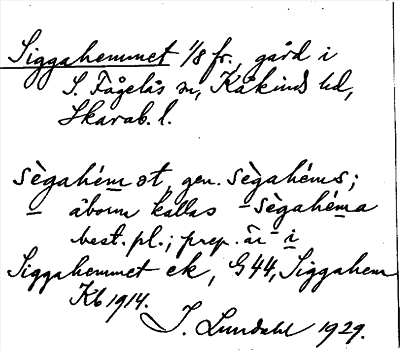 Siggahemmet 1/8 fr., gård i
S. Fågelås sn, Kåkinds hd,
Skarab. l.
sègahém øt, gen. sègahéms;
åborna kallas -sègahéma
best. pl.; prep. är i
Siggahemmet ek, G44, Siggahem
Kb 1914.
J. Lundahl 1929.